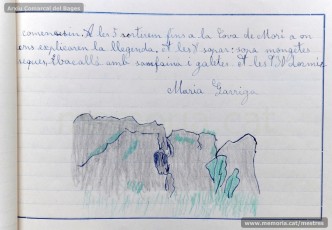 Arxiu Comarcal del Bages
comencàrem. A les 3 sortirem fins a la Cova de Moré a on
ens explicaren la llegenda, at les 8 sopar: sopa mongetes
seques, bacallà amb samfaina i galetes. At les 9'30 dormir.
Maria Garriga
www.memoria.cat/mestres